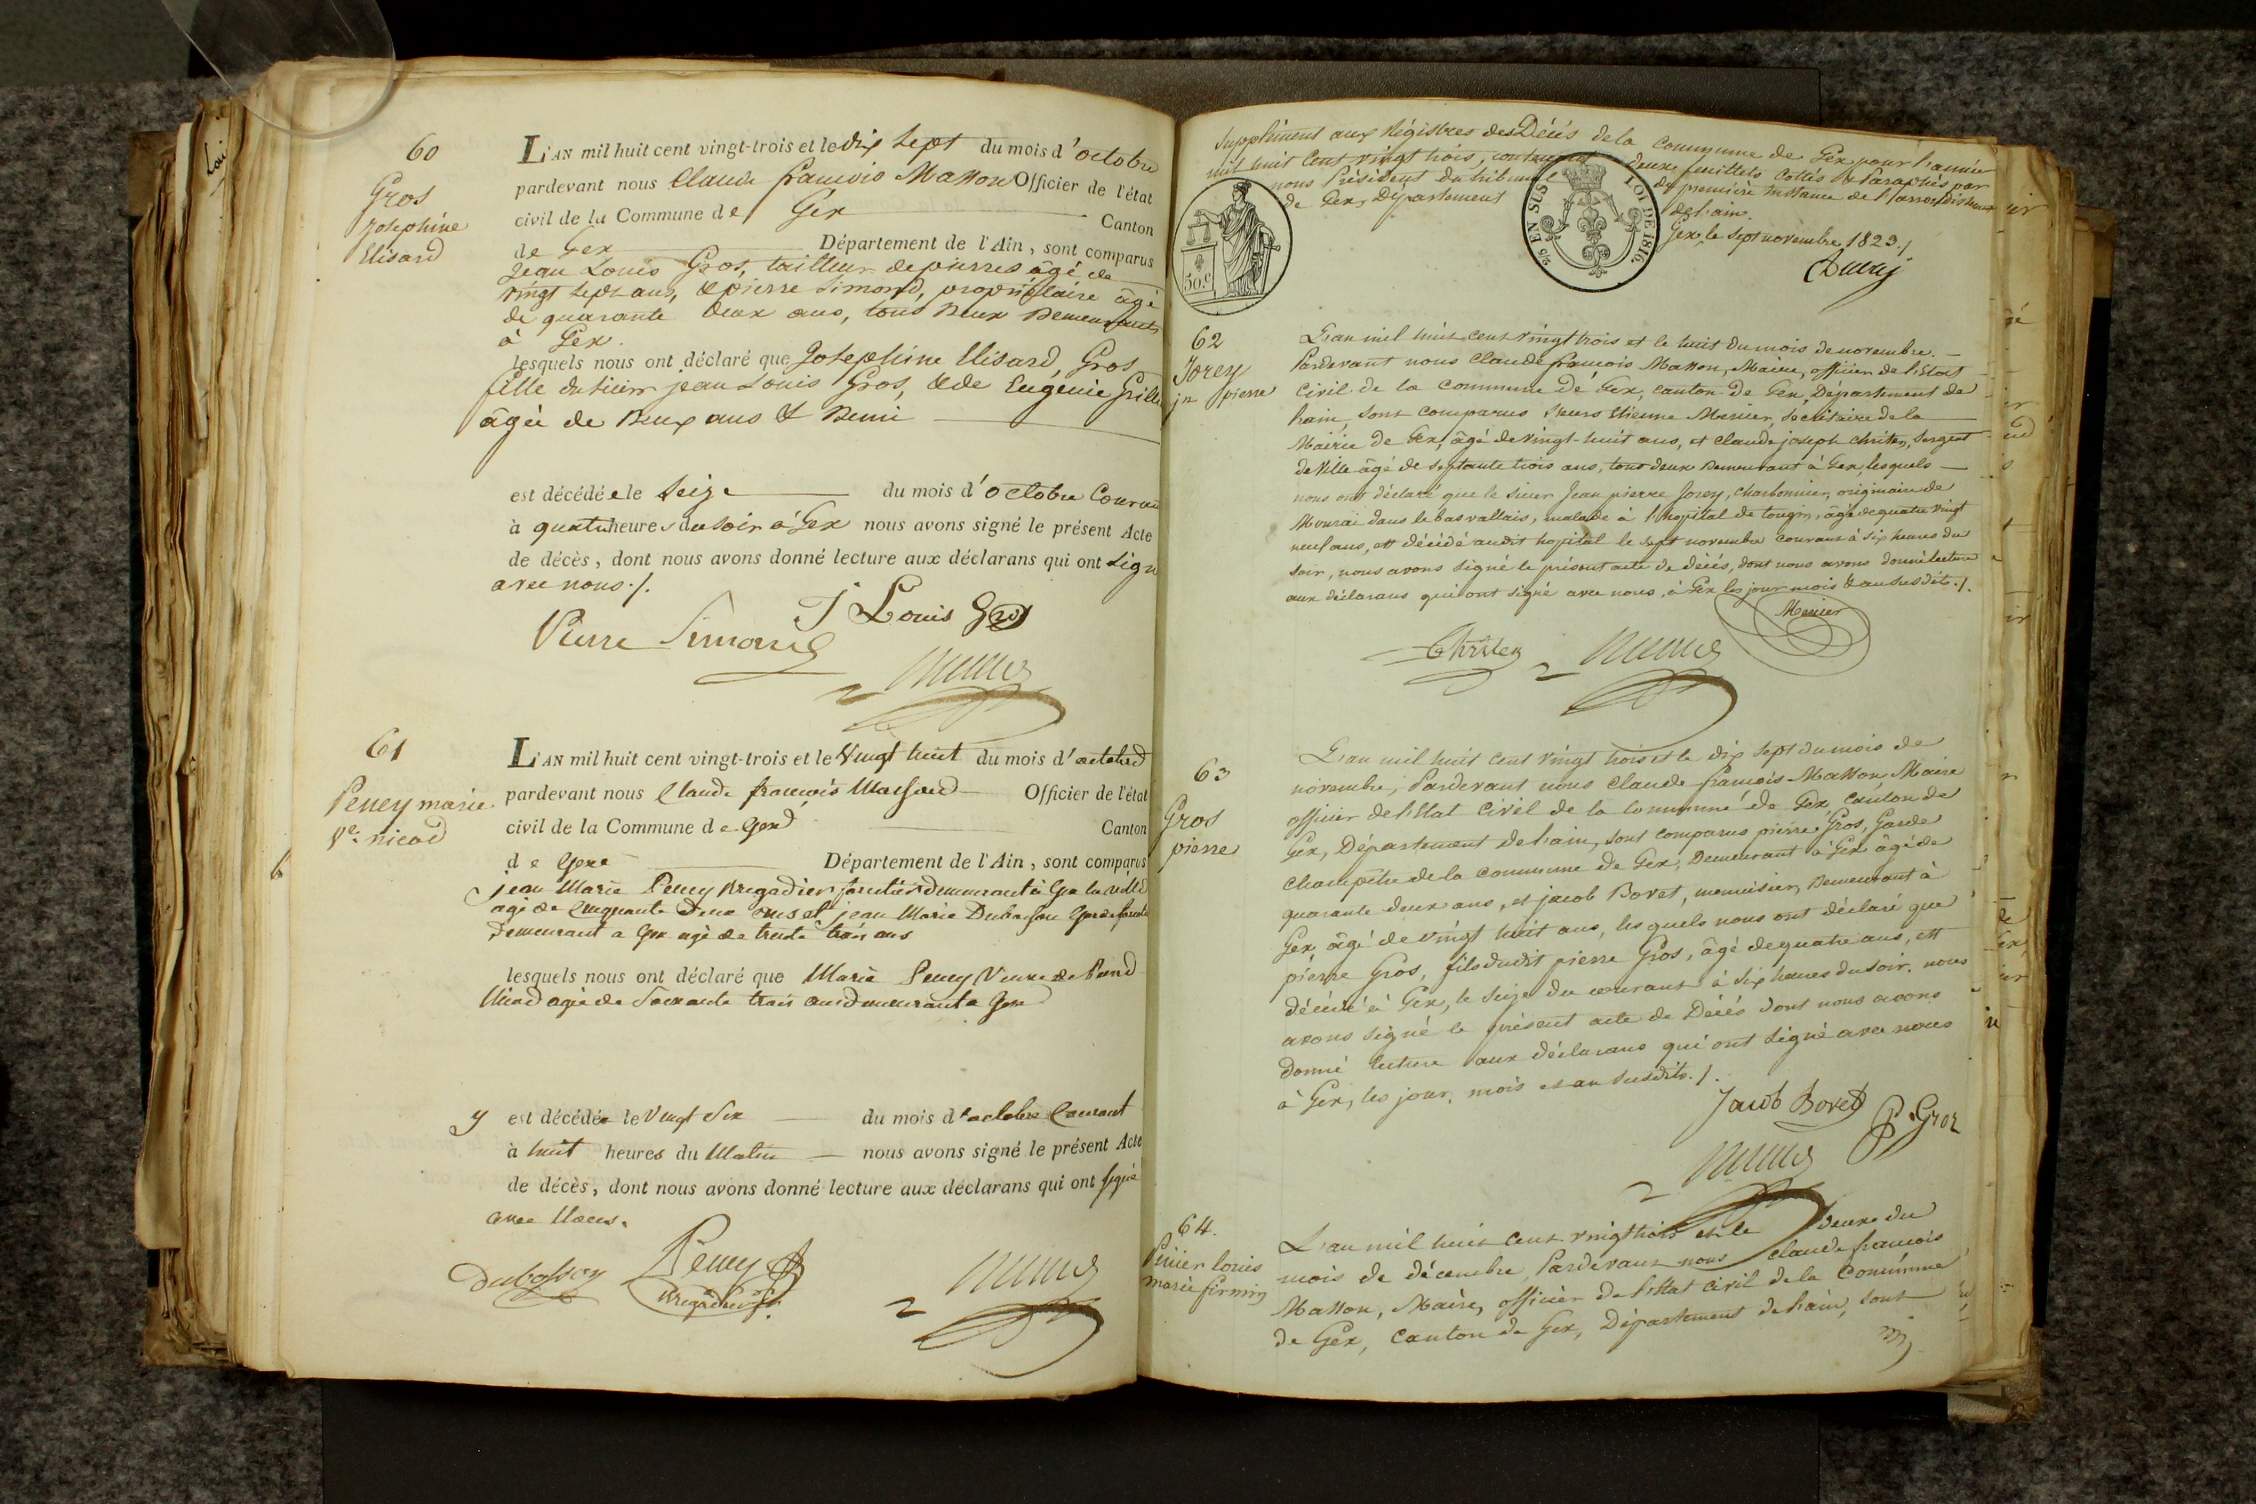 60
Gros
Josephine
Elisard
L'AN mil huit cent vingt-trois et le dix sept du mois d'octobre
pardevant nous Claude françois Masson Officier de l'état
civil de la Commune de Gex Canton
de Gex Département de l'Ain, sont comparus
Jean Louis Gros, tailleur de pierres âgé de
vingt sept ans, & pierre Simond, propriétaire âgé
de quarante deux ans, tous deux demeurants
à Gex.
lesquels nous ont déclaré que Josephine Elisard, Gros
fille du sieur jean Louis Gros, & de Eugenie Grille
âgée de deux ans & demi
est décédée le seize du mois d'octobre Courant
à quatre heures du soir à Gex nous avons signé le présent Acte
de décès, dont nous avons donné lecture aux déclarans qui ont signé
avec nous./.
J Louis Gros
Pierre Simond
61
Peney marie
Ve. nicod
L'AN mil huit cent vingt-trois et le Vingt huit du mois d'octobre
pardevant nous Claude francois Masson Officier de l'état
civil de la Commune de Gex Canton
de Gex Département de l'Ain, sont comparus
jean Marie Peney Brigadier forestier demeurant à Gex la ville
agé de Cinquante deux ans et jean Marie Dubosson Garde forestier
Demeurant a Gex agé de trente trois ans
lesquels nous ont déclaré que Marie Peney Veuve de
Nicod agée de Soixante trois ans demeurant a Gex
y est décédée le Vingt Six du mois d'octobre Courant
à huit heures du Matin nous avons signé le présent Acte
de décès, dont nous avons donné lecture aux déclarans qui ont signé
avec Nous.
Dubosson Peney
Brigadier f.
Supplément aux Régistres des Décés de la Commune de Gex pour l'année
mil huit Cent vingt trois, contenant deux feuillets Cottés & Paraphés par
nous Président du tribunal de première instance de l'arrondissement
de Gex, Département de l'ain.
Gex, le sept novembre 1823./
50.C
25 EN SUS
LOI DE 1816.
62
Jorey
jn pierre
L'an mil huit cent vingt trois et le huit du mois de novembre.
Pardevant nous Claude françois Masson, Maire, officier de l'Etat
Civil de la commune de Gex, canton de Gex, Département de
l'ain, sont comparus sieurs Etienne Mercier, secrétaire de la
Mairie de Gex, âgé de vingt-huit ans, et Claude joseph Christen, sergent
de Ville âgé de septante trois ans, tous deux demeurant à Gex, lesquels
nous ont déclaré que le sieur Jean pierre Jorey, Charbonnier, originaire de
dans le bas vallais, malade à l'hopital de tougin, âgé de quatre vingt
neuf ans, est décédé audit hopital le sept novembre courant à six heures du
soir, nous avons signé le présent acte de décés, dont nous avons donné lecture
aux déclarans qui ont signé avec nous, à Gex les jour mois & an susdits./.
Mercier
Christen
63
Gros
pierre
L'an mil huit cent vingt trois et le dix sept du mois de
novembre, Pardevant nous Claude françois Masson, Maire
officier de l'Etat Civil de la Commune de Gex, Canton de
Gex, Département de l'ain, sont comparus pierre Gros, Garde
Champêtre de la commune de Gex, demeurant à Gex âgé de
quarante deux ans, et jacob Bovet, menuisier, demeurant à
Gex, âgé de vingt huit ans, lesquels nous ont déclaré que
pierre Gros, fils dudit pierre Gros, âgé de quatre ans, est
décédé à Gex, le seize du courant à six heures du soir. nous
avons signé le présent acte de Décés dont nous avons
donné lecture aux déclarans qui ont signé avec nous
à Gex, les jour, mois et an susdits./.
Jacob Bovet P. Groz
64.
louis
marie firmin
L'an mil huit cent vingt trois et le deux du
mois de décembre, Pardevant nous Claude françois
Masson, Maire, officier de l'Etat Civil de la Commune
de Gex, Canton de Gex, Département de l'ain, sont